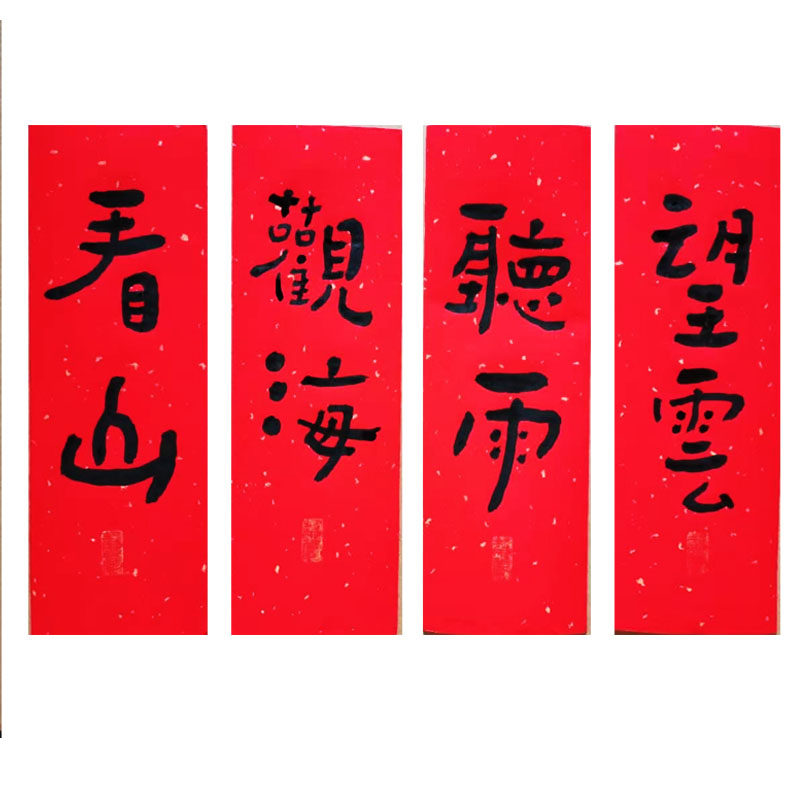 看山
觀海
聽雨
望雲